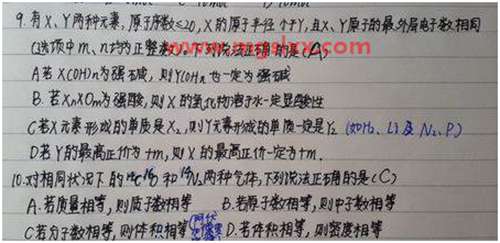 9.有X、Y两种元素,原子序数≤20,X的原子半径小于Y,且X、Y原子的最外层电子数相同
(选项中m、n均为正整数)。下列说法正确的是(A)
A若X(OH)n为强碱,则Y(OH)n也一定为强碱
B.若HnXOm为强酸,则X的氢化物溶于水一定显酸性
C若X元素形成的单质是X2,则Y元素形成的单质一定是Y2 (如H2、Li及N2、P.)
D若Y的最高正价为+m,则X的最高正价一定为+m.
10.对相同状况下的 和 N2两种气体,下列说法正确的是(C)
A.若质量相等,则质子数相等 B.若原子数相等,则中子数相等
C若分子数相等,则体积相等 D.若体积相等,则密度相等